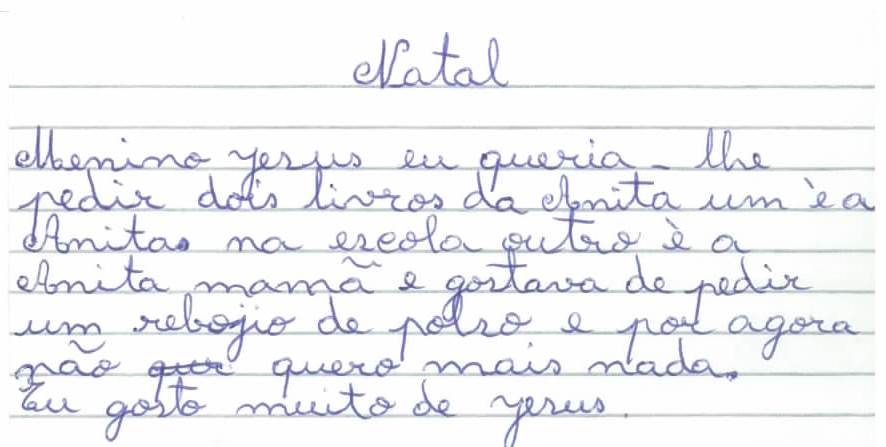 Natal
Menino yesus eu queria-lhe
pedir dois livros da Anita um è a
Anita na escola outro è a
Anita mamã e gostava de pedir
um rebogio de polso e por agora
não que quero mais nada.
Eu gosto muito de yesus.